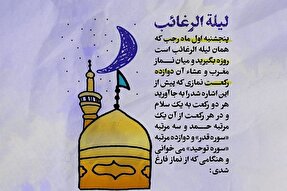 لیلة الرغائب
پنجشنبه اول ماه رجب که
همان لیلة الرغائب است
روزه بگیرید و میان نماز
مغرب و عشاء آن دوازده
رکعت نمازی که پیش از
این اشاره شد را به جا آورید
هر دو رکعت به یک سلام
و در هر رکعت از آن یک
مرتبه حمد و سه مرتبه
«سوره قدر» و دوازده مرتبه
«سوره توحید» می خوانی
و هنگامی که از نماز فارغ
شدی: